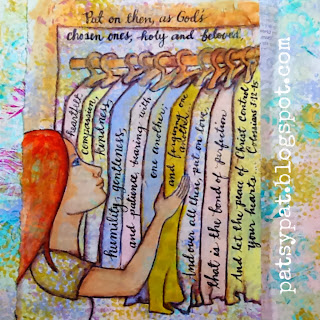 Put on then, as God's
chosen ones, holy and beloved,
heartfelt
compassion,
kindness,
humility, gentleness,
and patience, bearing with
one another,
and forgiving one
another.
And over all these, put on love,
that is the bond of perfection
And let the peace of Christ control
your hearts.
Colossians 3:12-15
patsypat.blogspot.com